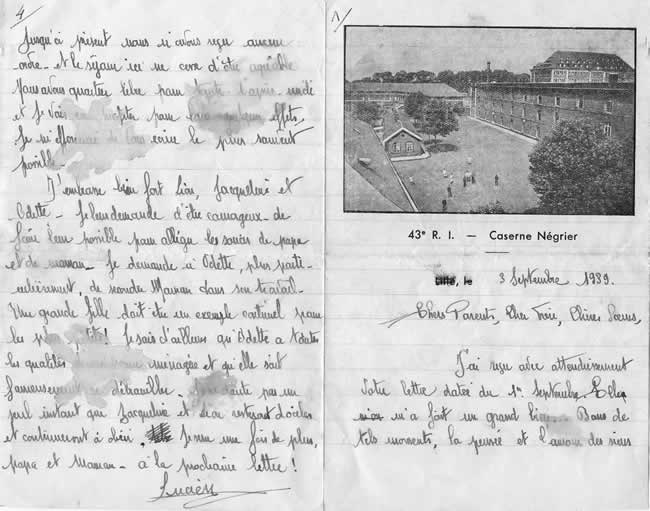 4
Jusqu'à présent nous n'avons reçu aucun
ordre - et le séjour ici ne cesse d'être agréable
Nous avons quartier libre pour toute l'après-midi
et je vais en profiter pour mes effets.
Je m'efforcerai de vous écrire le plus souvent
possible
J'embrasse bien fort Jacqueline et
Odette - Je leur demande d'être courageux - de
faire leur possible pour alléger les soucis de papa
et de maman - Je demande à Odette, plus parti-
culièrement, de seconder Maman dans son travail -
Une grande fille doit être un exemple continuel pour
les plus petits! Je sais d'ailleurs qu'Odette a toutes
les qualités d'une bonne ménagère et qu'elle sait
fameusement se débrouiller. Je ne doute pas un
seul instant que Jacqueline et resteront dociles
et continueront à Je une fois de plus,
papa et Maman - à la prochaine lettre!
Lucien
1
43e R. I. — Caserne Négrier
Lille, le 3 Septembre 1939.
Chers Parents, Cher Frère, Chères Soeurs,
J'ai reçu avec attendrissement
votre lettre datée du 1er Septembre. Elle
m'a fait un grand bien. Dans de
tels moments, la pensée et l'amour des siens